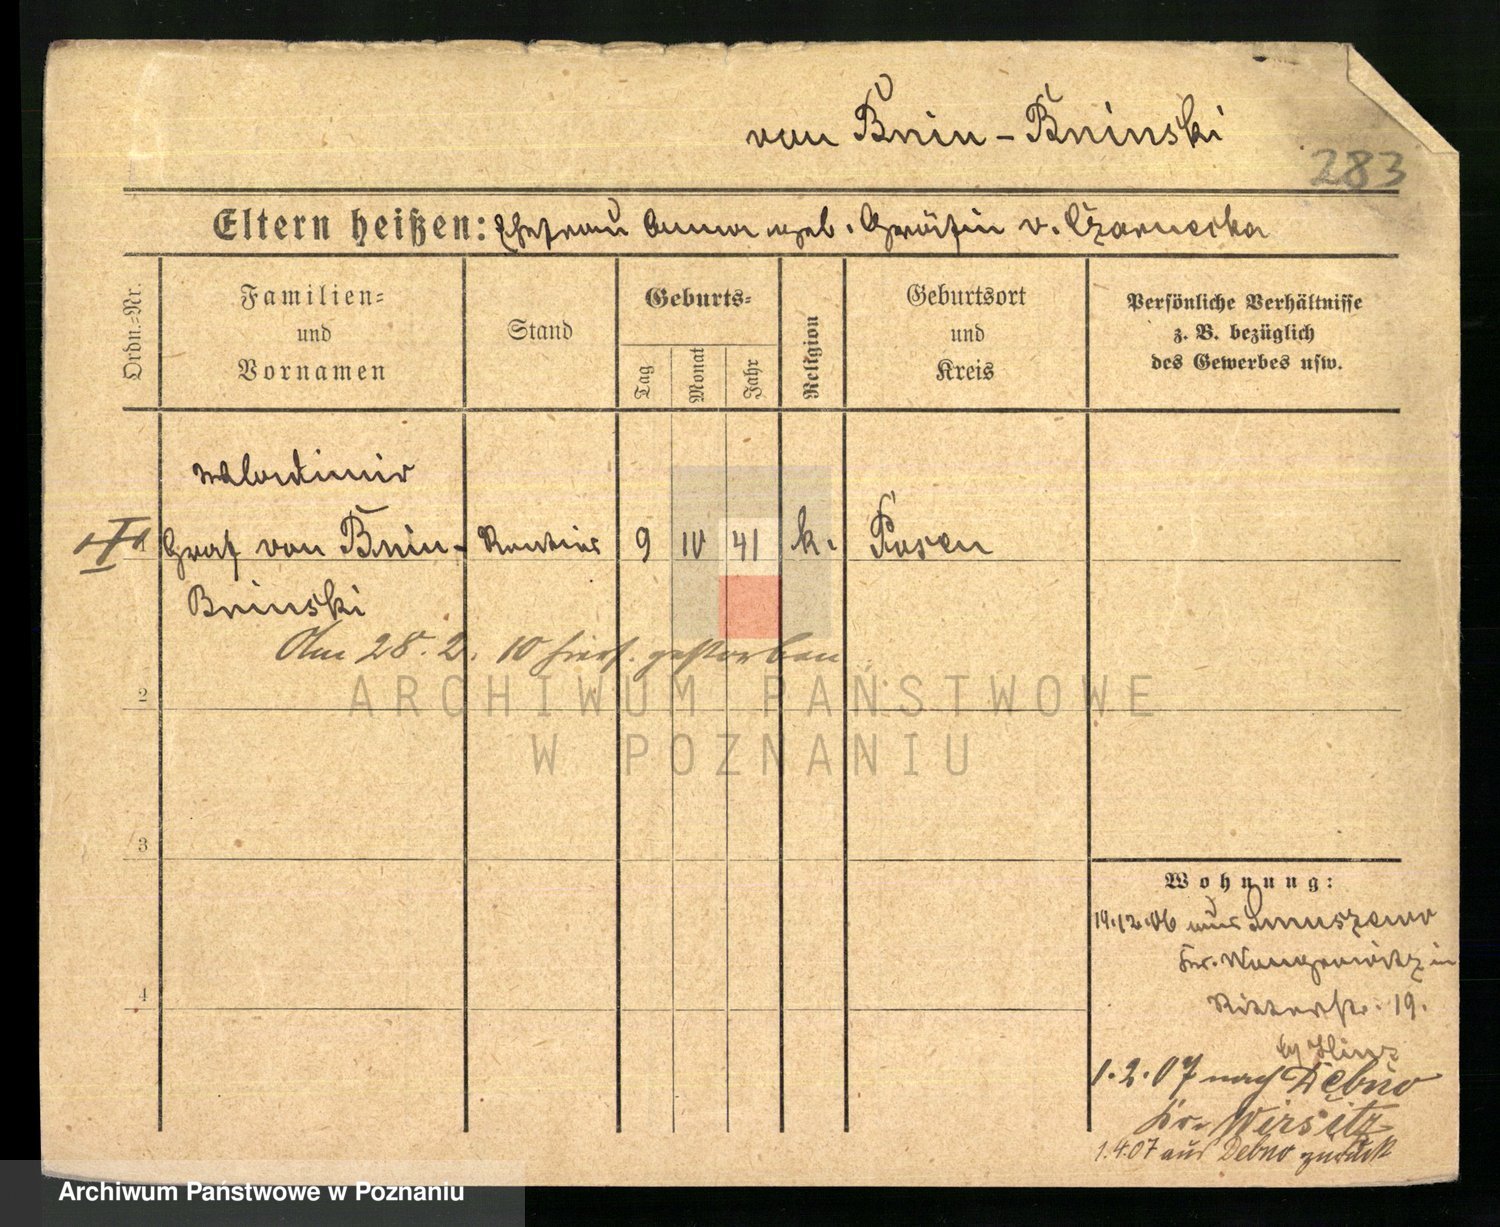 von Bnin - Bninski
283
Eltern heißen: Ehefrau Anna geb. Gräfin v. Czarnecka
Ordn.-Nr.
Familien-
und
Vornamen
Stand
Geburts-
Tag
Monat
Jahr
Religion
Geburtsort
und
Kreis
Persönliche Verhältnisse
z. B. bezüglich
des Gewerbes usw.
Wlodimir
1 Graf von Bnin- Rentier 9 10 41 k. Posen
Bninski
Am 28. 2. 10 hier gestorben
ARCHIWUM PAŃSTWOWE
W POZNANIU
2
3
4
Wohnung:
19.12.06 aus Smuszewo
Kr. Wongrowitz in
Ritterstr. 19.
by
1.2.07 nach Debno
Kr. Wirsitz
1.4.07 aus Debno zurück
Archiwum Państwowe w Poznaniu